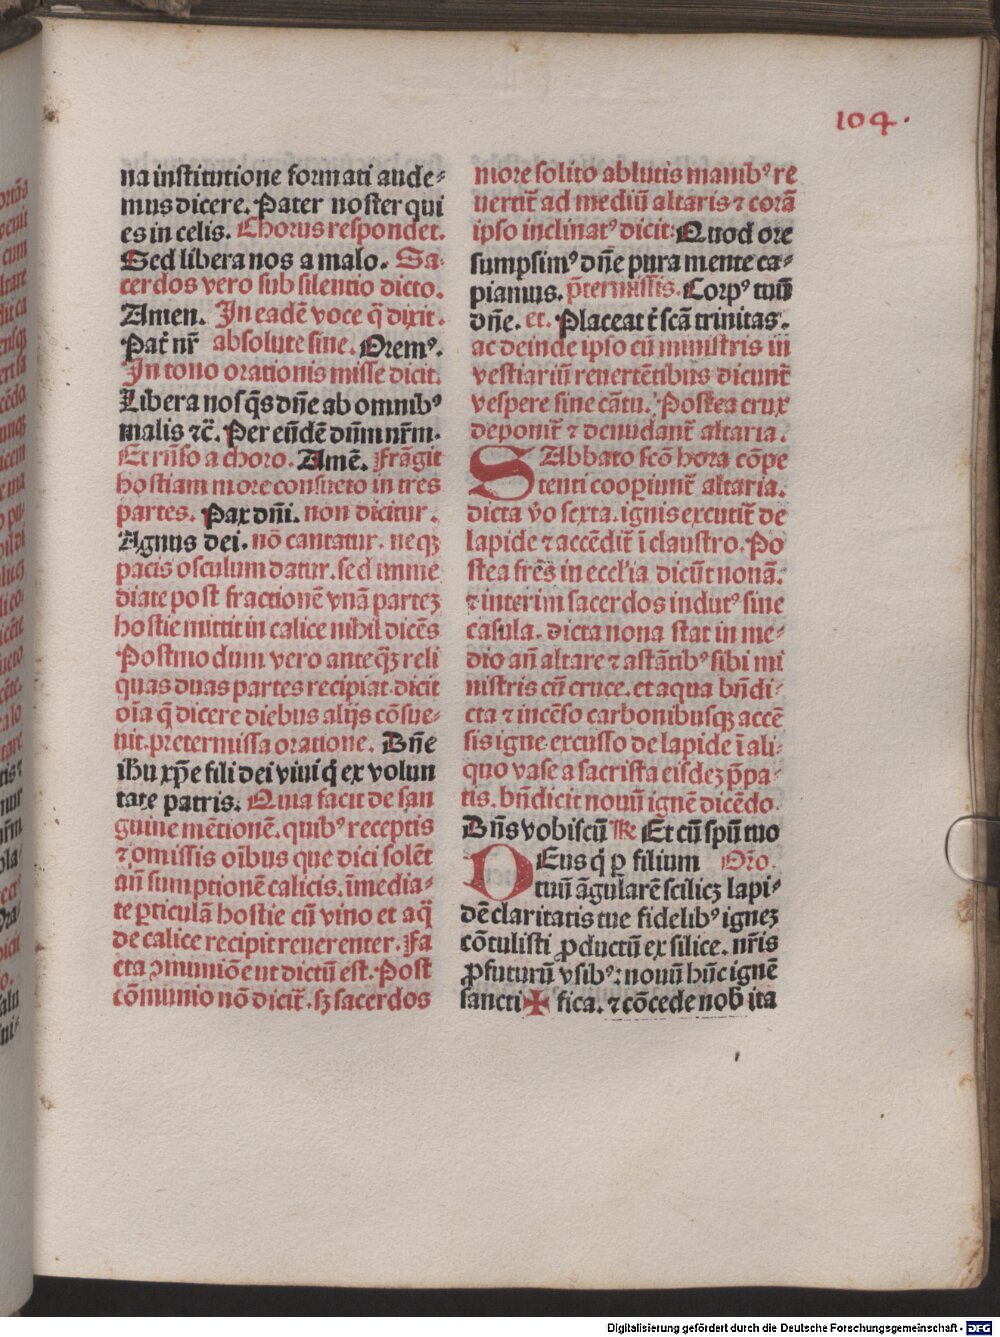 104.
na institutione formati aude⸗
mus dicere. Pater noster qui
es in celis. Chorus respondet.
Sed libera nos a malo. Sa⸗
cerdos vero sub silentio dicto.
Amen. In eadē voce q̄ dixit.
Pat̄ nr̄ absolute sine. Oremꝰ.
In tono orationis misse dicit.
Libera nos q̄s dn̄e ab omnibꝰ
malis ⁊c̄. Per eūdē dn̄m nr̄m.
Et rn̄so a choro. Amē. Frāgit
hostiam more consueto in tres
partes. Pax dn̄i. non dicitur.
Agnus dei. nō cantatur. neqꝫ
pacis osculum datur. sed imme
diate post fractionē vnā parteꝫ
hostie mittit in calice nihil dicēs
Postmodum vero anteq̄ꝫ reli
quas duas partes recipiat. dicit
oīa q̄ dicere diebus alijs cōsue⸗
uit. pretermissa oratione. Dn̄e
ihū xp̄e fili dei viui q̇ ex volun
tate patris. Quia facit de san
guine mētionē. quibꝰ receptis
⁊ omissis oībus que dici solēt
an̄ sumptionē calicis. īmedia⸗
te ꝑticulā hostie cū vino et aq̄
de calice recipit reuerenter. Fa
cta ꝯmuniōe vt dictū est. Post
cōmunio nō dicit̄. sꝫ sacerdos
more solito ablutis manibꝰ re
uertit̄ ad mediū altaris ⁊ corā
ipso inclinatꝰ dicit: Quod ore
sumpsimꝰ dn̄e pura mente ca⸗
piamus. p̄termissis. Corpꝰ tuū
dn̄e. et. Placeat t̄ scā trinitas.
ac deinde ipso cū ministris in
vestiariū reuertētibus dicunt̄
vespere sine cātu. Postea crux
deponit̄ ⁊ denudant̄ altaria.
SAbbato scō hora cōpe
tenti cooꝑiunt̄ altaria.
dicta v̄o sexta. ignis excutit̄ de
lapide ⁊ accēdit̄ ī claustro. Po
stea fr̄es in eccl'ia dicūt nonā.
⁊ interim sacerdos indutꝰ sine
casula. dicta nona stat in me⸗
dio an̄ altare ⁊ astātibꝰ sibi mi
nistris cū cruce. et aqua bn̄di⸗
cta ⁊ incēso carbonibusqꝫ accē
sis igne excusso de lapide ī ali⸗
quo vase a sacrista eisdeꝫ p̄pa⸗
tis. bn̄dicit nouū ignē dicēdo.
Dn̄s vobiscū ℟ Et cū spū tuo
DEus q̇ ꝑ filium Or̄o.
tuū āgularē scilicꝫ lapi⸗
dē claritatis tue fidelibꝰ igneꝫ
cōtulisti ꝓductū ex silice. nr̄is
ꝓfuturū vsibꝰ: nouū hūc ignē
sancti✠fica. ⁊ cōcede nob̄ ita
Digitalisierung gefördert durch die Deutsche Forschungsgemeinschaft - DFG